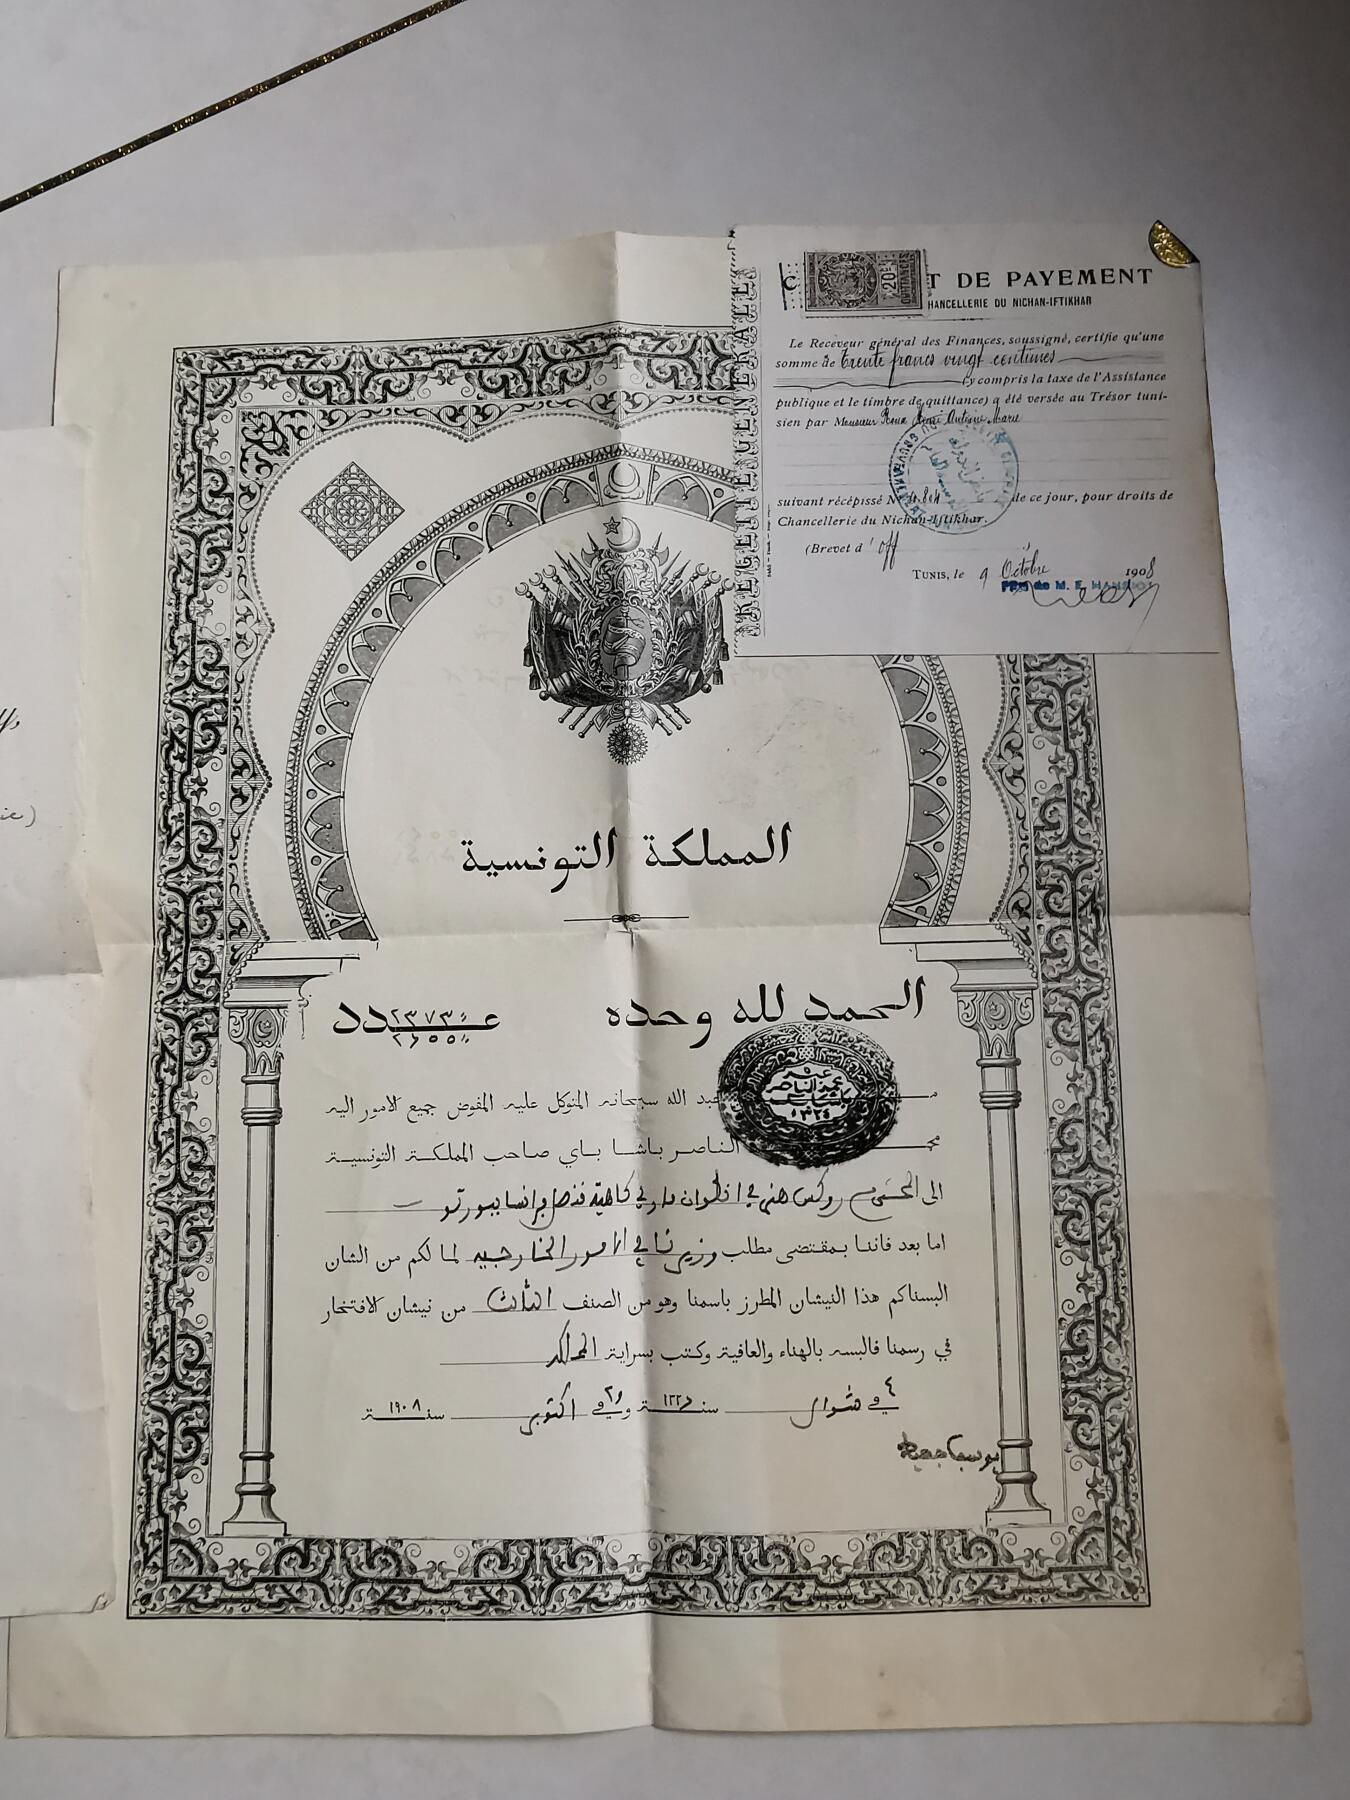 T DE PAYEMENT
HANCELLERIE DU NICHAN-IFTIKHAR
20 C
QUITTANCES
RECETTE GÉNÉRALE
Le Receveur général des Finances, soussigné, certifie qu'une
somme de trente francs vingt centimes
(y compris la taxe de l'Assistance
publique et le timbre de quittance) a été versée au Trésor tuni-
sien par Monsieur Roux Henri Antoine Marie
suivant récépissé N° de ce jour, pour droits de
Chancellerie du Nichan-Iftikhar.
(Brevet d'off
TUNIS, le 9 Octobre 1908
المملكة التونسية
الحمد لله وحده
عدد
٢٣٧٣٠
عبد الله سبحانه المتوكل عليه المفوض جميع الامور اليه
محمد الناصر باشا باي صاحب المملكة التونسية
الى المحترم روكس هنري انطوان ماري كاهية قنصل فرانسا ببورتو
اما بعد فاننا بمقتضى مطلب وزيرنا في الامور الخارجيه لما لكم من الشان
البسناكم هذا النيشان المطرز باسمنا وهو من الصنف الثالث من نيشان الافتخار
في رسمنا فالبسه بالهناء والعافية وكتب بسراية
٤ في شوال سنة ١٣٢٦ وفي اكتوبر سنة ١٩٠٨
عبده
محمد الناصر
١٣٢٤